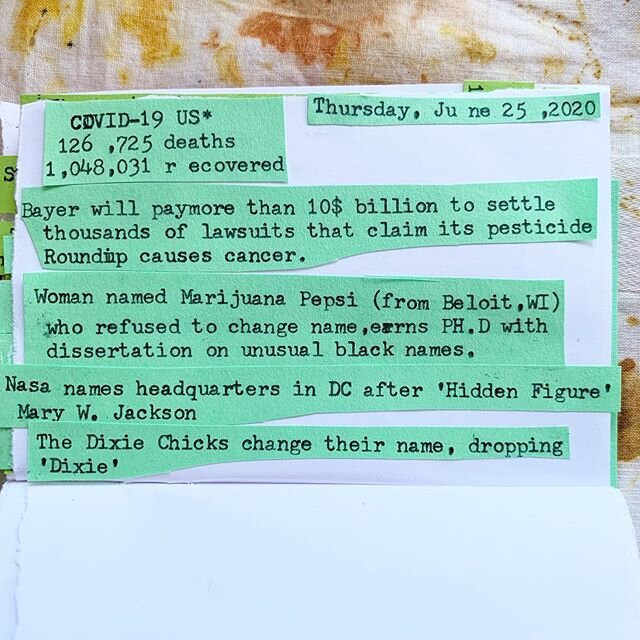 COVID-19 US*
126 ,725 deaths
1,048,031 r ecovered
Thursday, Ju ne 25 ,2020
Bayer will paymore than 10$ billion to settle
thousands of lawsuits that claim its pesticide
Roundup causes cancer.
Woman named Marijuana Pepsi (from Beloit,WI)
who refused to change name,earns PH.D with
dissertation on unusual black names.
Nasa names headquarters in DC after 'Hidden Figure'
Mary W. Jackson
The Dixie Chicks change their name, dropping
'Dixie'